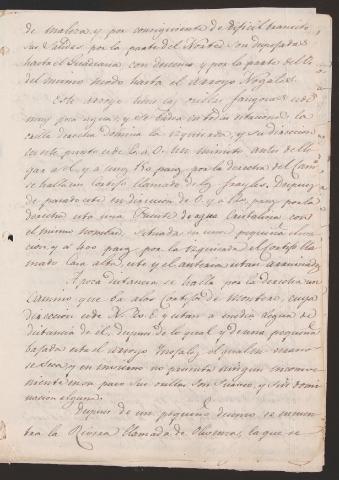 de maleza y por consiguiente de dificil transito
sus caidas por la parte del Norte son despejadas
hasta el Guadiana con desenso y por la parte del S.
del mismo modo hasta el arroyo Nogales.
Este arroyo tiene las orillas fangosas es de
muy poca agua, y se badea en todas estaciones, la
orilla derecha domina la izquierda, y su direccion
en este punto es de E. a O. un minuto antes de lle
gar a el, y a unos 150 pasos por la derecha del Camo.
se halla un Cortijo llamado de los frayles. Despues
de pasado este en direccion de O. y a 100 pasos por la
derecha esta una Fuente de agua
el mismo nombre, situada en una pequeña eleva
cion y a 400 pasos por la izquierda el Cortijo lla
mado Casa alta, este y el anterior estan arruinados
A poca distancia se halla por la derecha un
Camino que ba a los Cortijos de Montero, cuya
direccion es de N. O. E. y estan a media legua de
distancia de el, despues de lo qual y de una pequeña
bajada esta el arroyo el qual en verano
se seca, y en imbierno no presenta ningun incombe
niente en su paso sus orillas son y sin domi
nacion alguna.
Despues de un pequeño desenso se encuen
tra la Rivera llamada de Olivenza, la que se